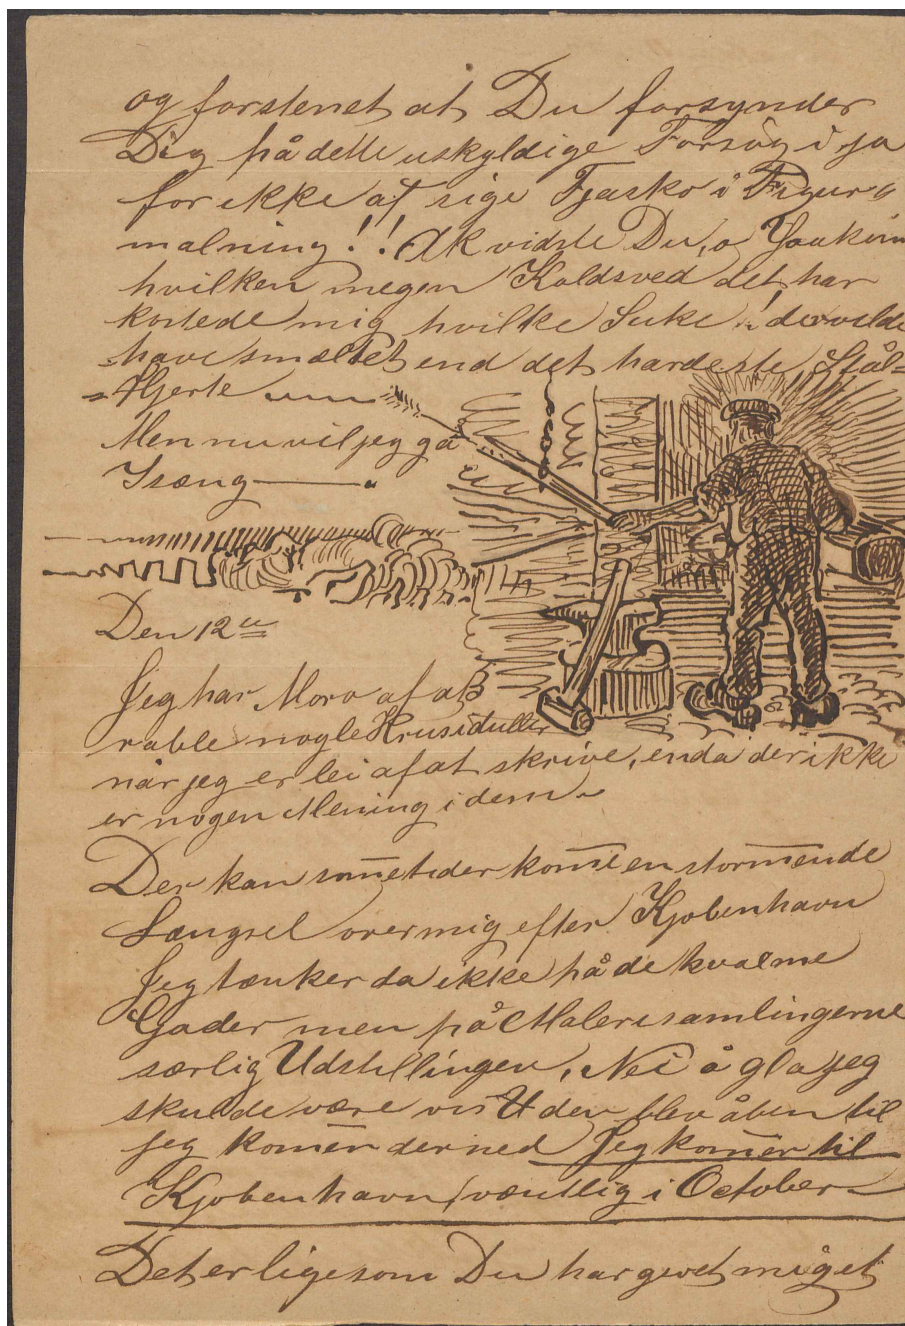 og forstenet at Du forsynder
Dig på dette uskyldige Forsøg i ja
for ikke at sige Fjasko i Figur
malning!! Ak vidste Du, o Joakim
hvilken megen Koldsved det har
kostede mig hvilke Suke! der vilde
have smæltet end det hardeste Stål=
=Hjerte
Men nu vil jeg gå
Isæng
Den 12
Jeg har Moro af at
rable nogle Krusiduller
når jeg er lei af at skrive, enda der ikke
er nogen Mening i dem
Der kan som̄etider kom̄e en storm̄ende
Længsel over mig efter Kjøbenhavn
Jeg tænker da ikke på de kvalme
Gader men på Malerisamlingerne
særlig Udstillingen, Nei å gla jeg
skulde være vis den blev åben til
jeg kom̄er derned Jeg kom̄er til
Kjøbenhavn væntlig i October
Det er ligesom Du har gevet mig et